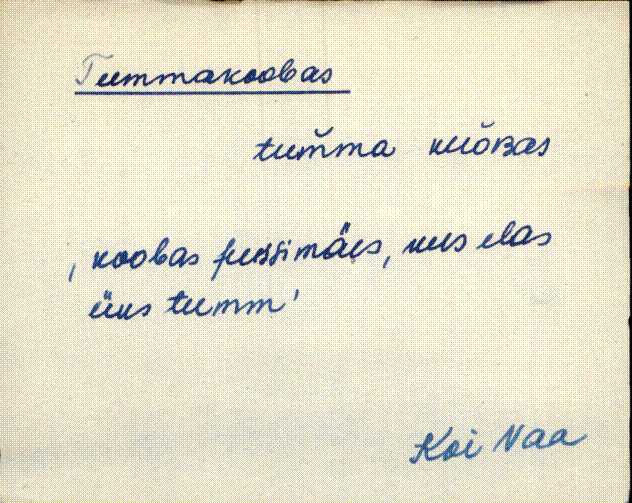 Tummakoobas
tum̆ma kuŏʙas
‚koobas pussimäes, kus elas
üks tumm'
Koi Naa